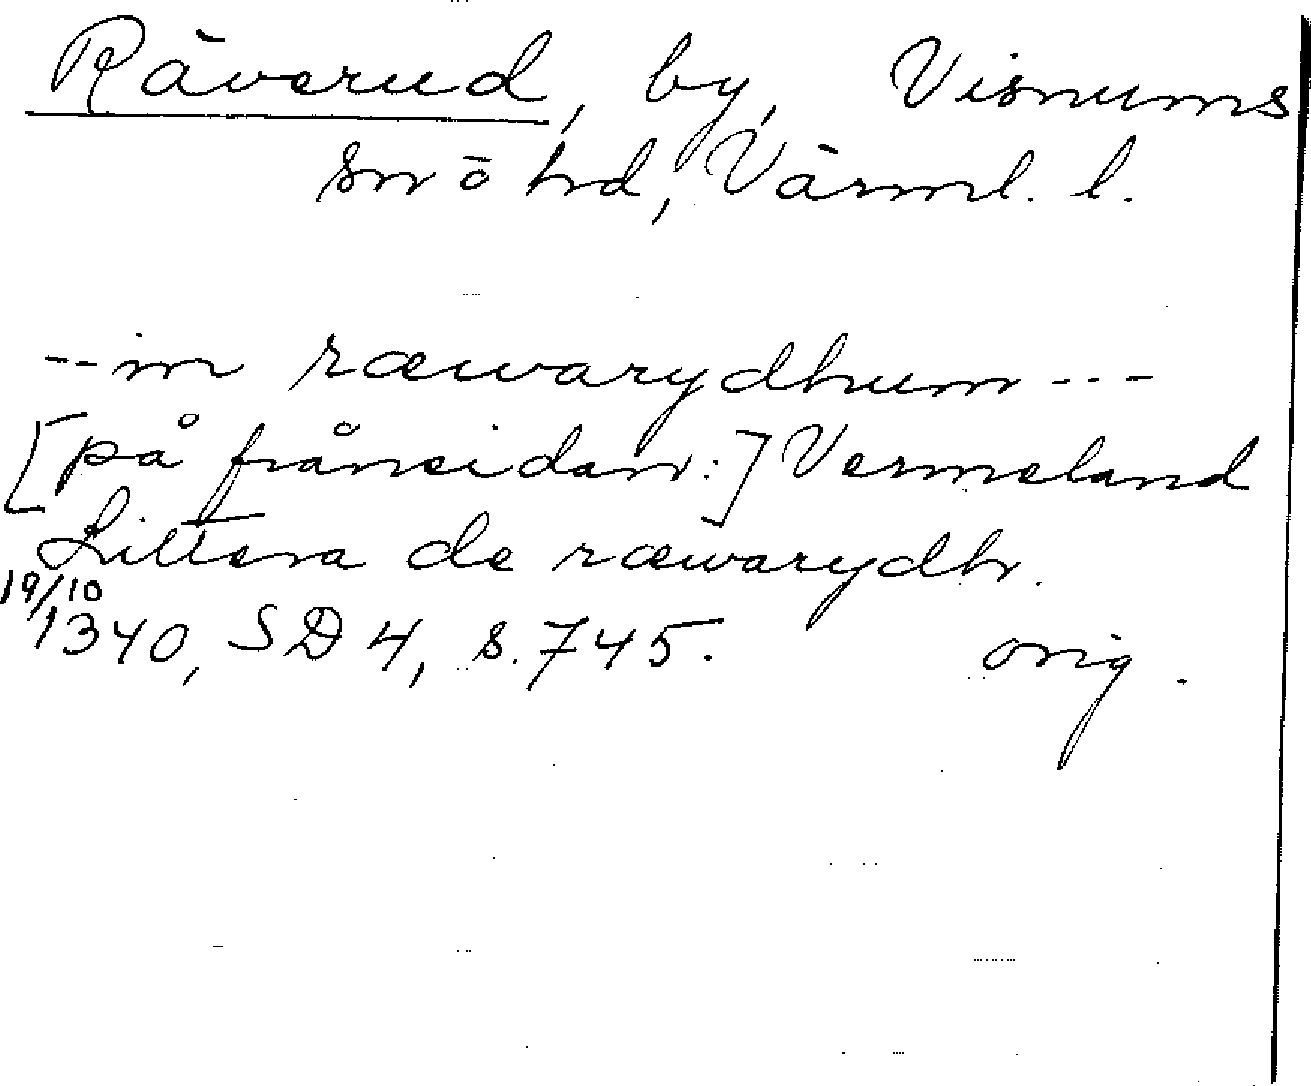 Räverud, by, Visnums
sn ö hd, Värml. l.
-- in ræwarydhum ---
[på frånsidan:] Vermeland
Littera de ræwarydh.
19/10
1340, SD 4, s. 745. orig.